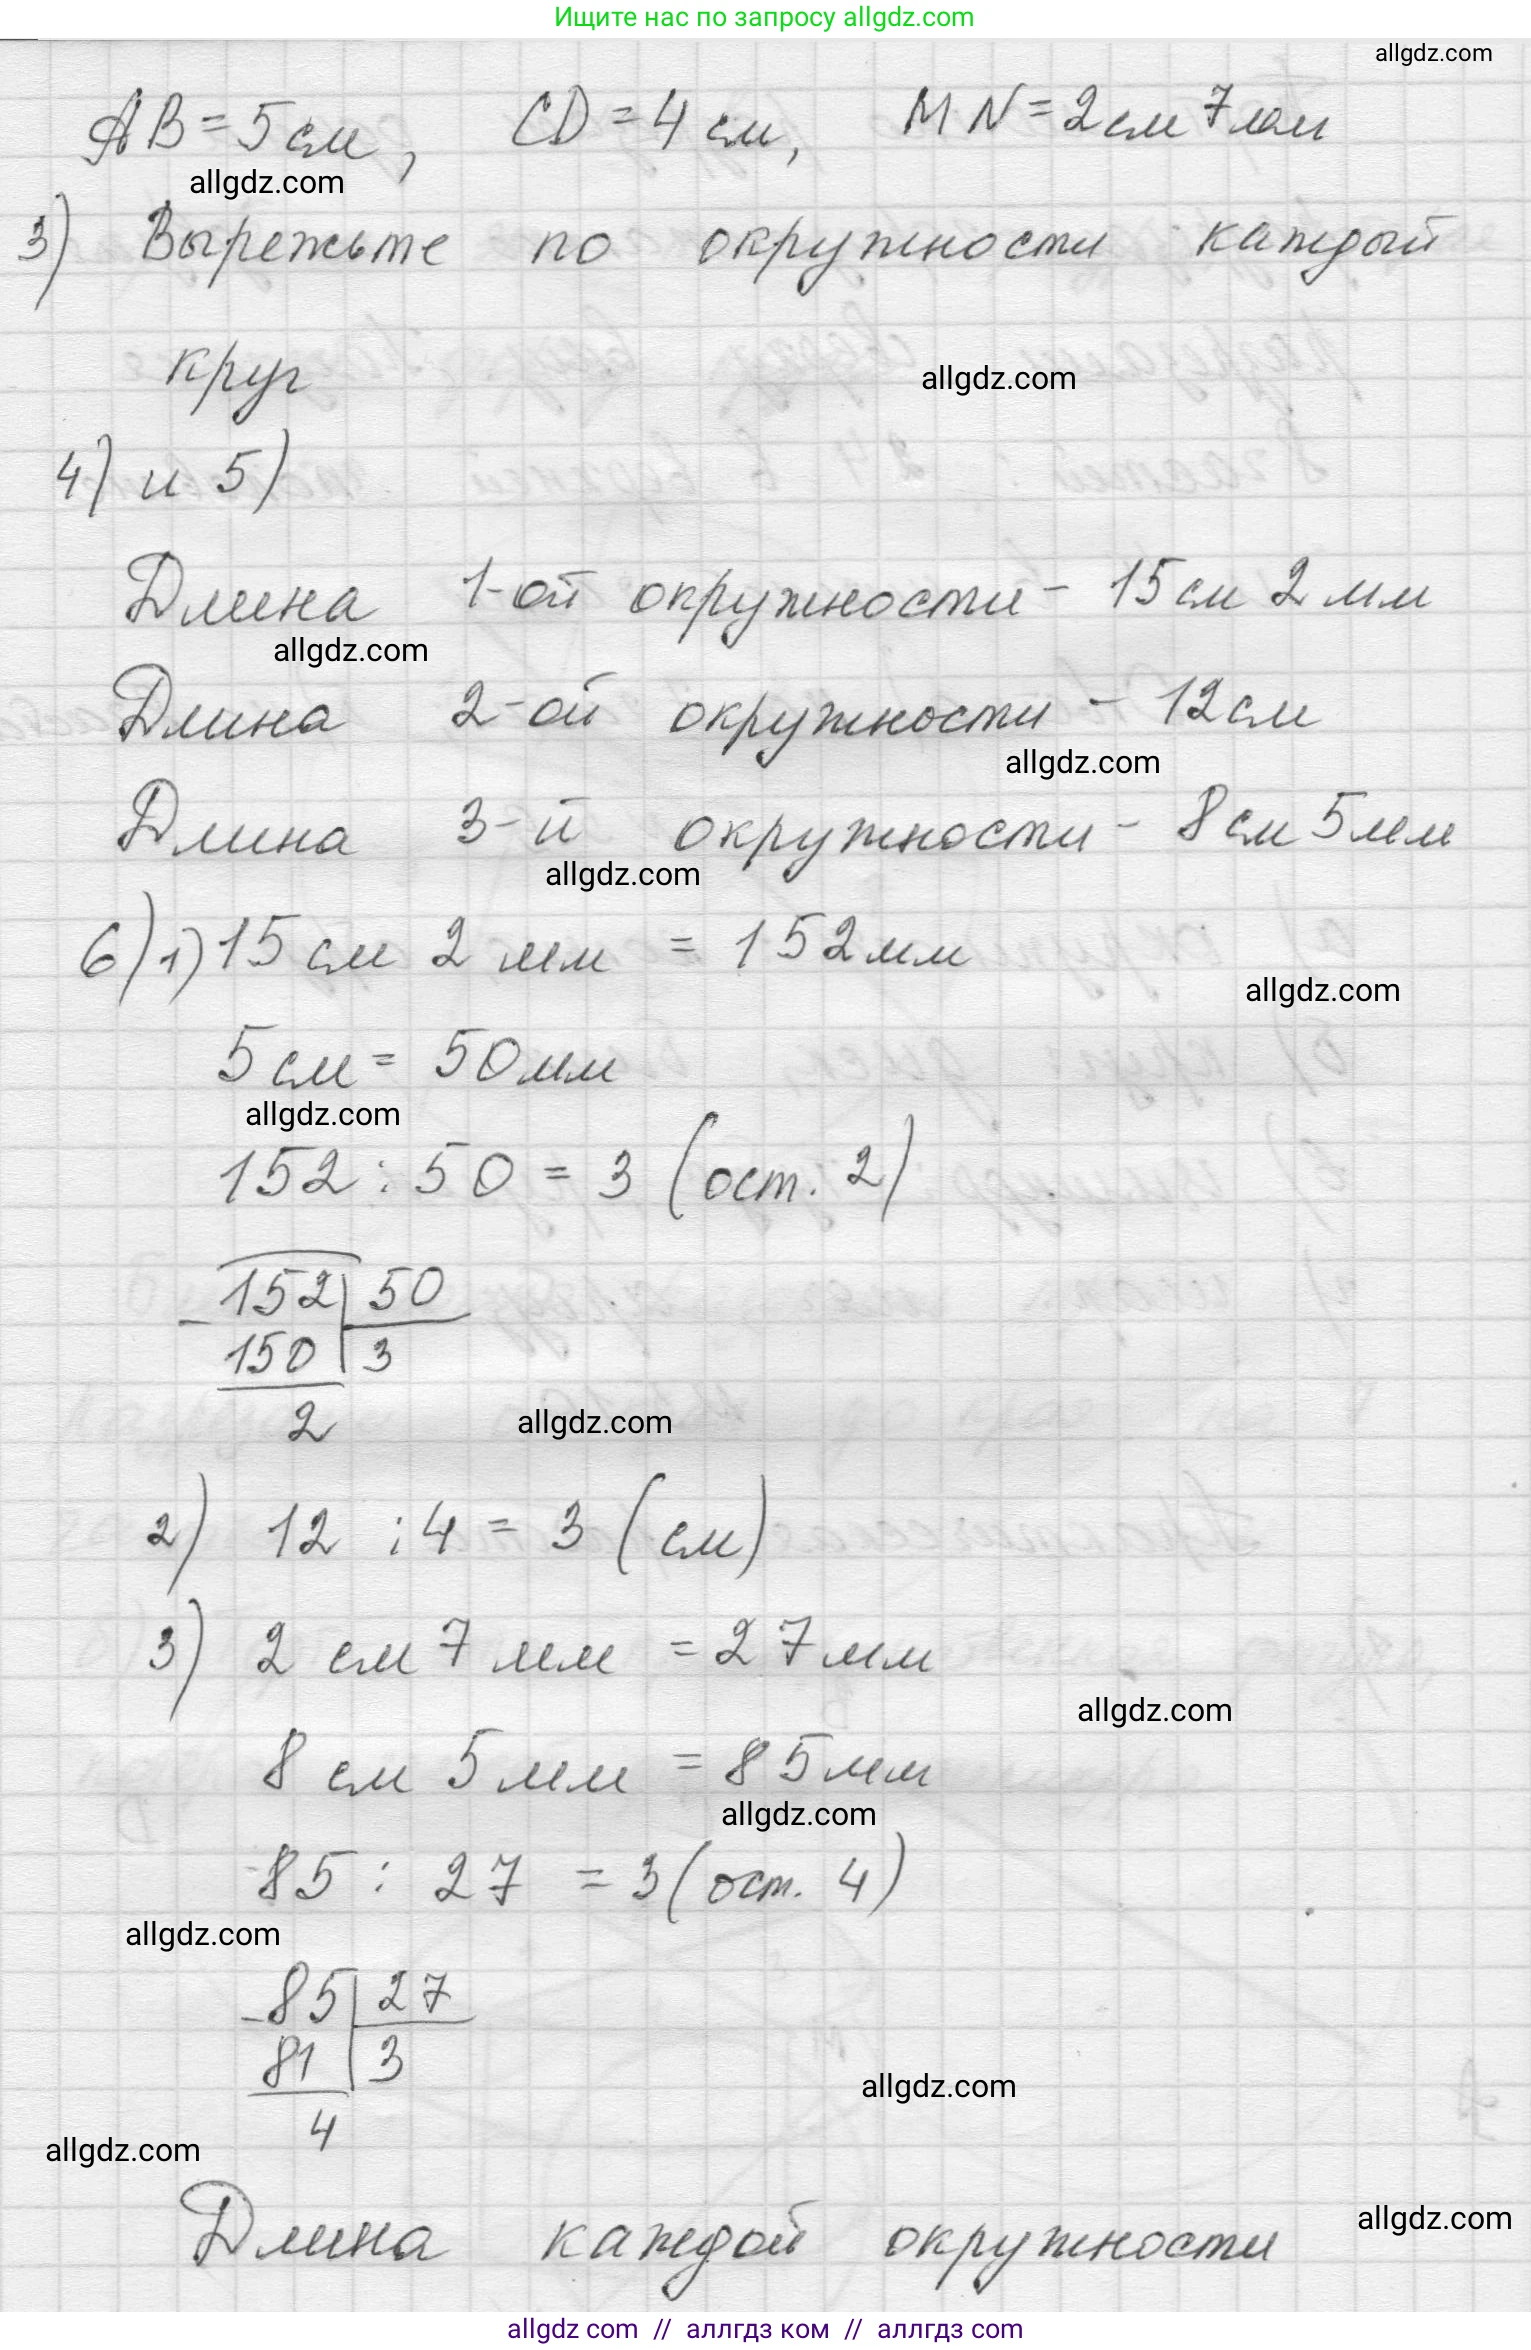 Ищите нас по запросу allgdz.com
allgdz.com
AB = 5 см, CD = 4 см, MN = 2 см 7 мм
allgdz.com
3) Вырежьте по окружности каждый
круг
allgdz.com
4) и 5)
Длина 1-ой окружности - 15 см 2 мм
allgdz.com
Длина 2-ой окружности - 12 см
allgdz.com
Длина 3-й окружности - 8 см 5 мм
allgdz.com
6) 1) 15 см 2 мм = 152 мм
allgdz.com
5 см = 50 мм
allgdz.com
152 : 50 = 3 (ост. 2)
- 152 | 50
150 | 3
2
allgdz.com
2) 12 : 4 = 3 (см)
3) 2 см 7 мм = 27 мм
allgdz.com
8 см 5 мм = 85 мм
allgdz.com
85 : 27 = 3 (ост. 4)
allgdz.com
- 85 | 27
81 | 3
allgdz.com
4
allgdz.com
allgdz.com
Длина каждой окружности
allgdz.com // аллгдз ком // аллгдз.com